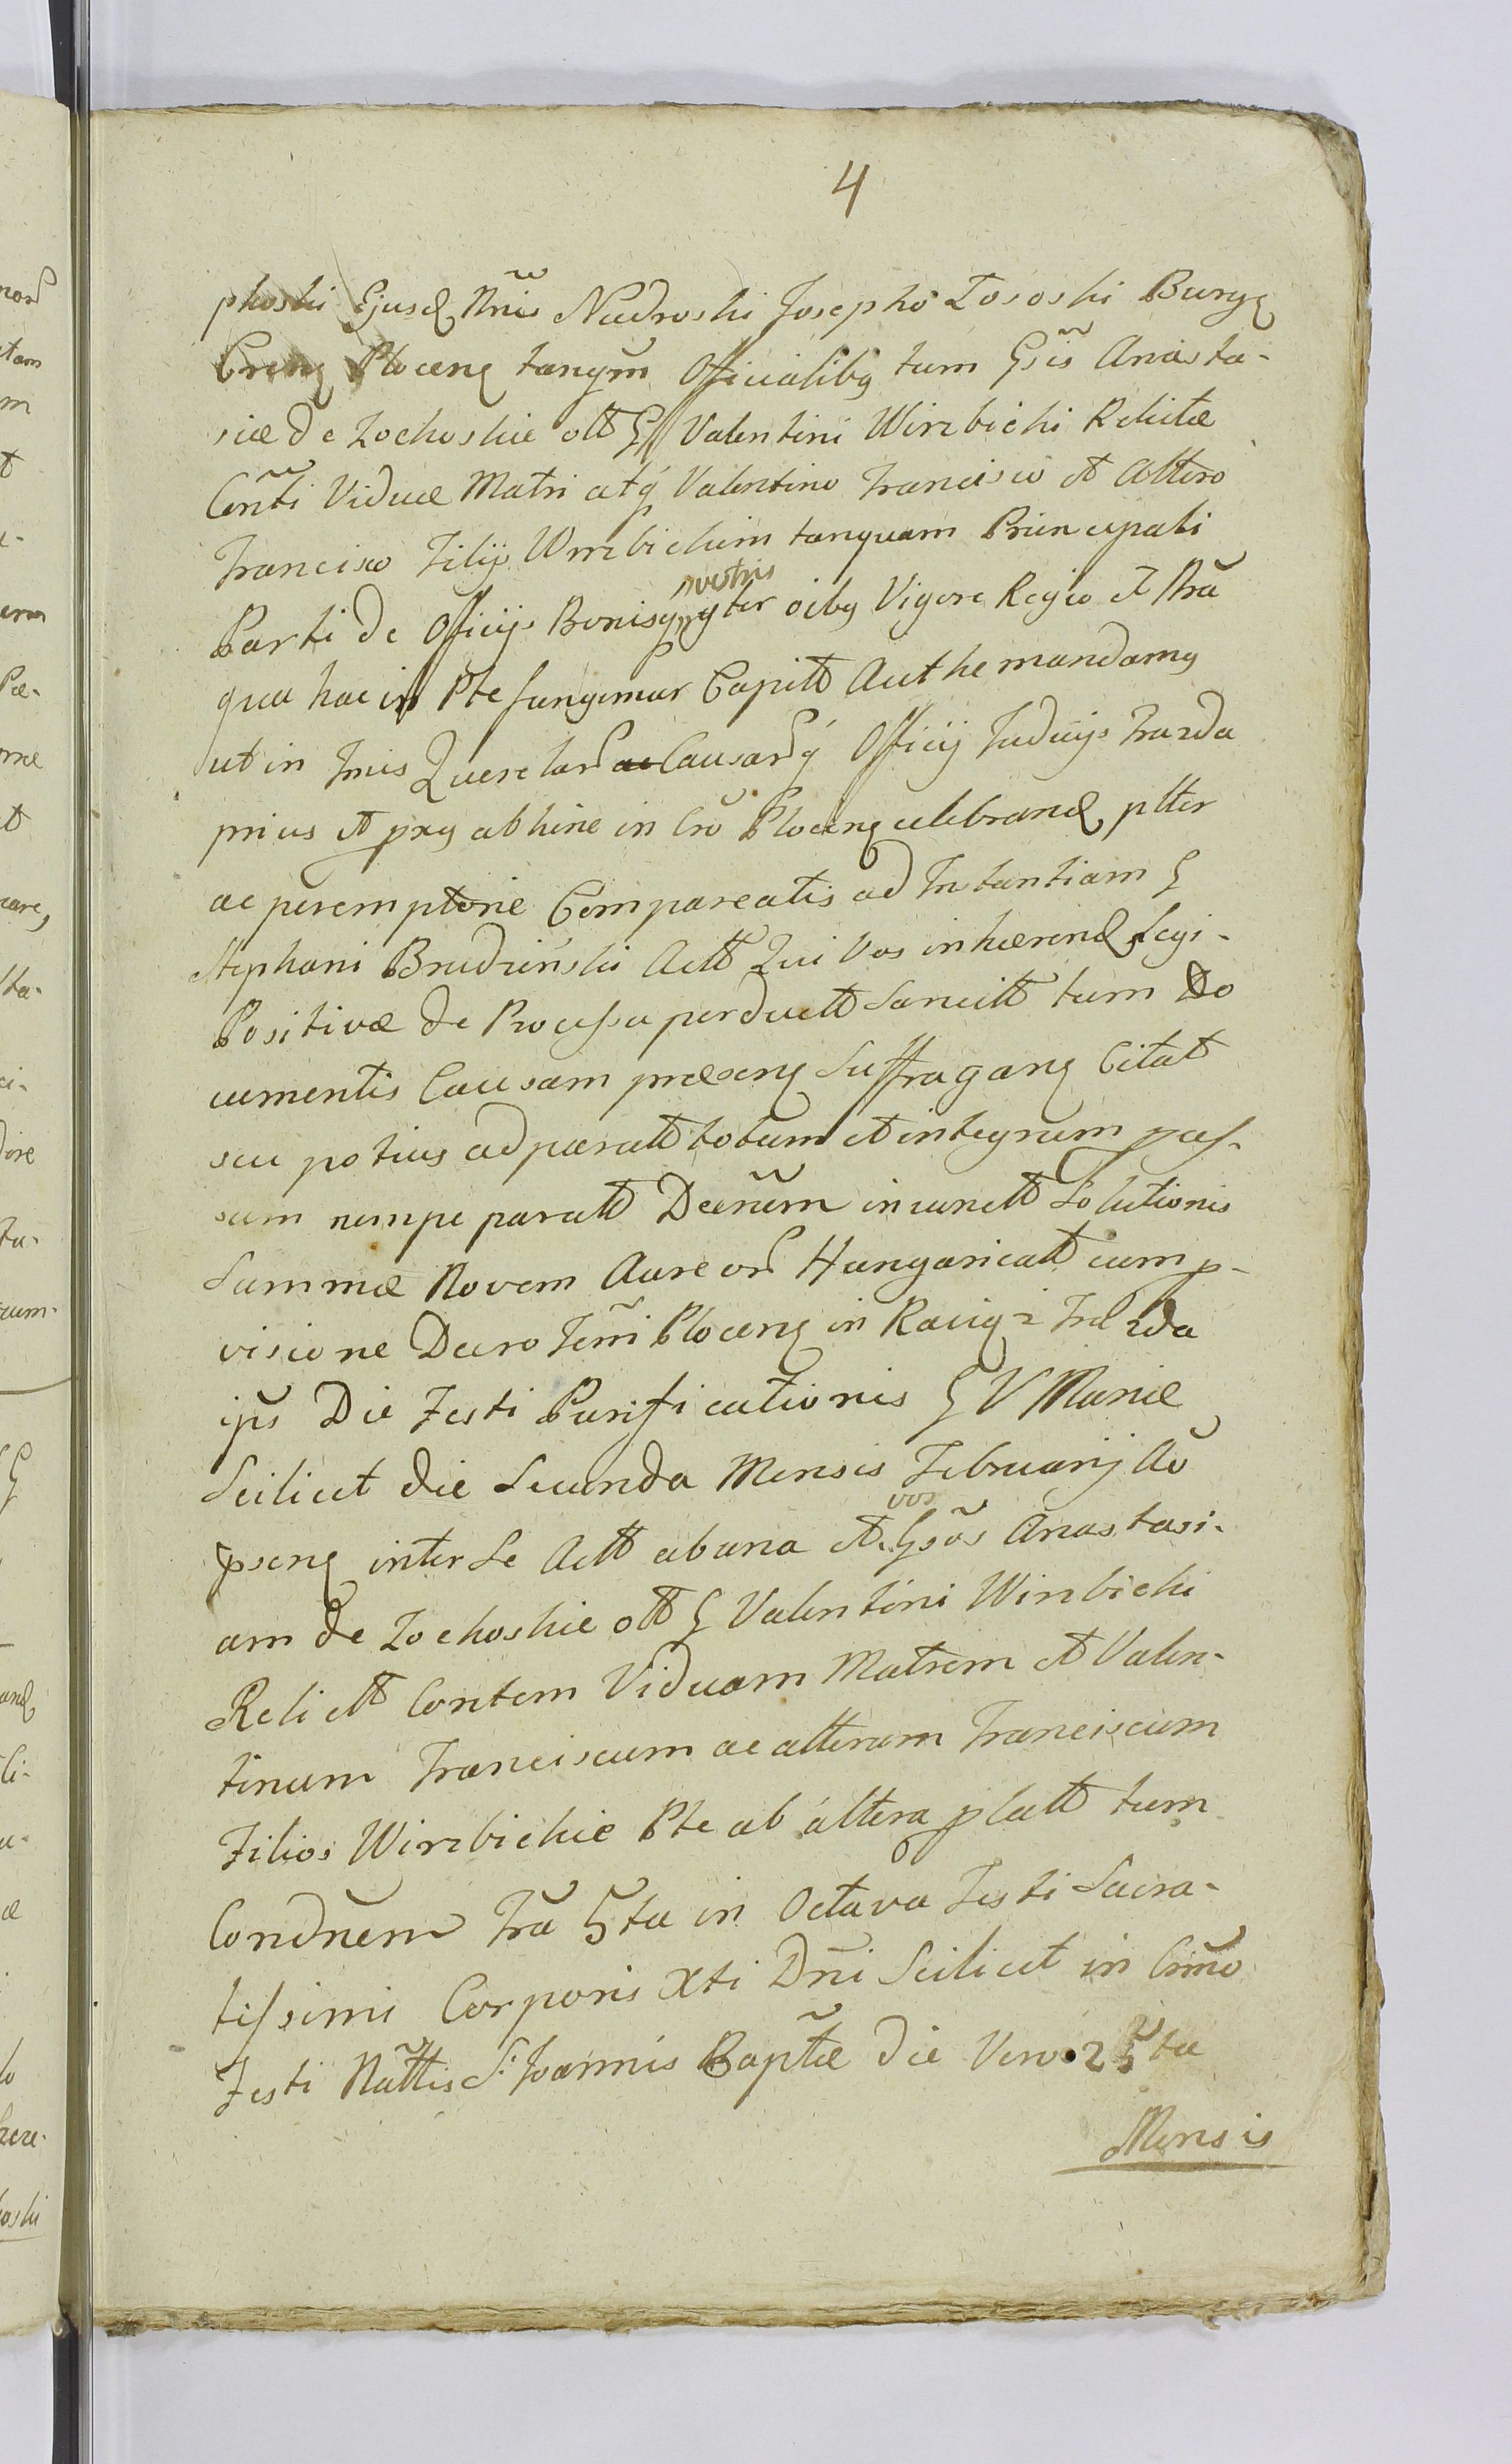 4
phoski Ejusd Nris Nadroski Josepho Lososki Burgg
Creng Ploceng tanqm Officialibg tum Gsis Anasta-
siæ de Zochoskie olt G Valentini Wirzbichi Relictæ
Conti Viduæ Matri atq Valentino Francisco et altero
Francisco Filijs Wirzbichim tanquam Principali
Parti de Officijs Bonisq vestris gter oibg Vigore Regio et Nra
qua hac in Pte fungimur Capitt Autthe mandamg
ut in Tmis Querelar Causarq Officij Judicijs Fra 2da
prius et pxg abhinc in Cro Ploceng celebrand pltter
ac peremptorie Compareatis ad Instantiam G
Stephani Brudzinski Actt Qui Vos inhærend Legi-
Positivæ de Processu perductt Sancitt tum Do
cumentis Causam præseng Suffragang Citat
seu potius ad paratt totum et integrum pas-
sum nempe paratt Decrum incunctt Solutionis
Summæ Novem Aureor Hungaricatt cum p-
visione Decro Terri Ploceng in Raciąz Frl 2da
ips Die Festi Purificationis G V Mariæ
Scilicet die Secunda Mensis Februarij Ao
pseng inter Se Actt ab una et vos Gsos Anastasi-
am de Zochoskie olt G Valentini Wirzbichi
Relictt Contem Viduam Matrem et Valen-
tinum Franciscum ac alterum Franciscum
Filios Wirzbichie Pte ab altera platt tum
Condnem Fra 5ta in Octava Festi Sacra-
tissimi Corporis Xti Dni Scilicet in Crmo
Festi Nattis S. Joannis Baptæ die Vero 25ta
Mensis